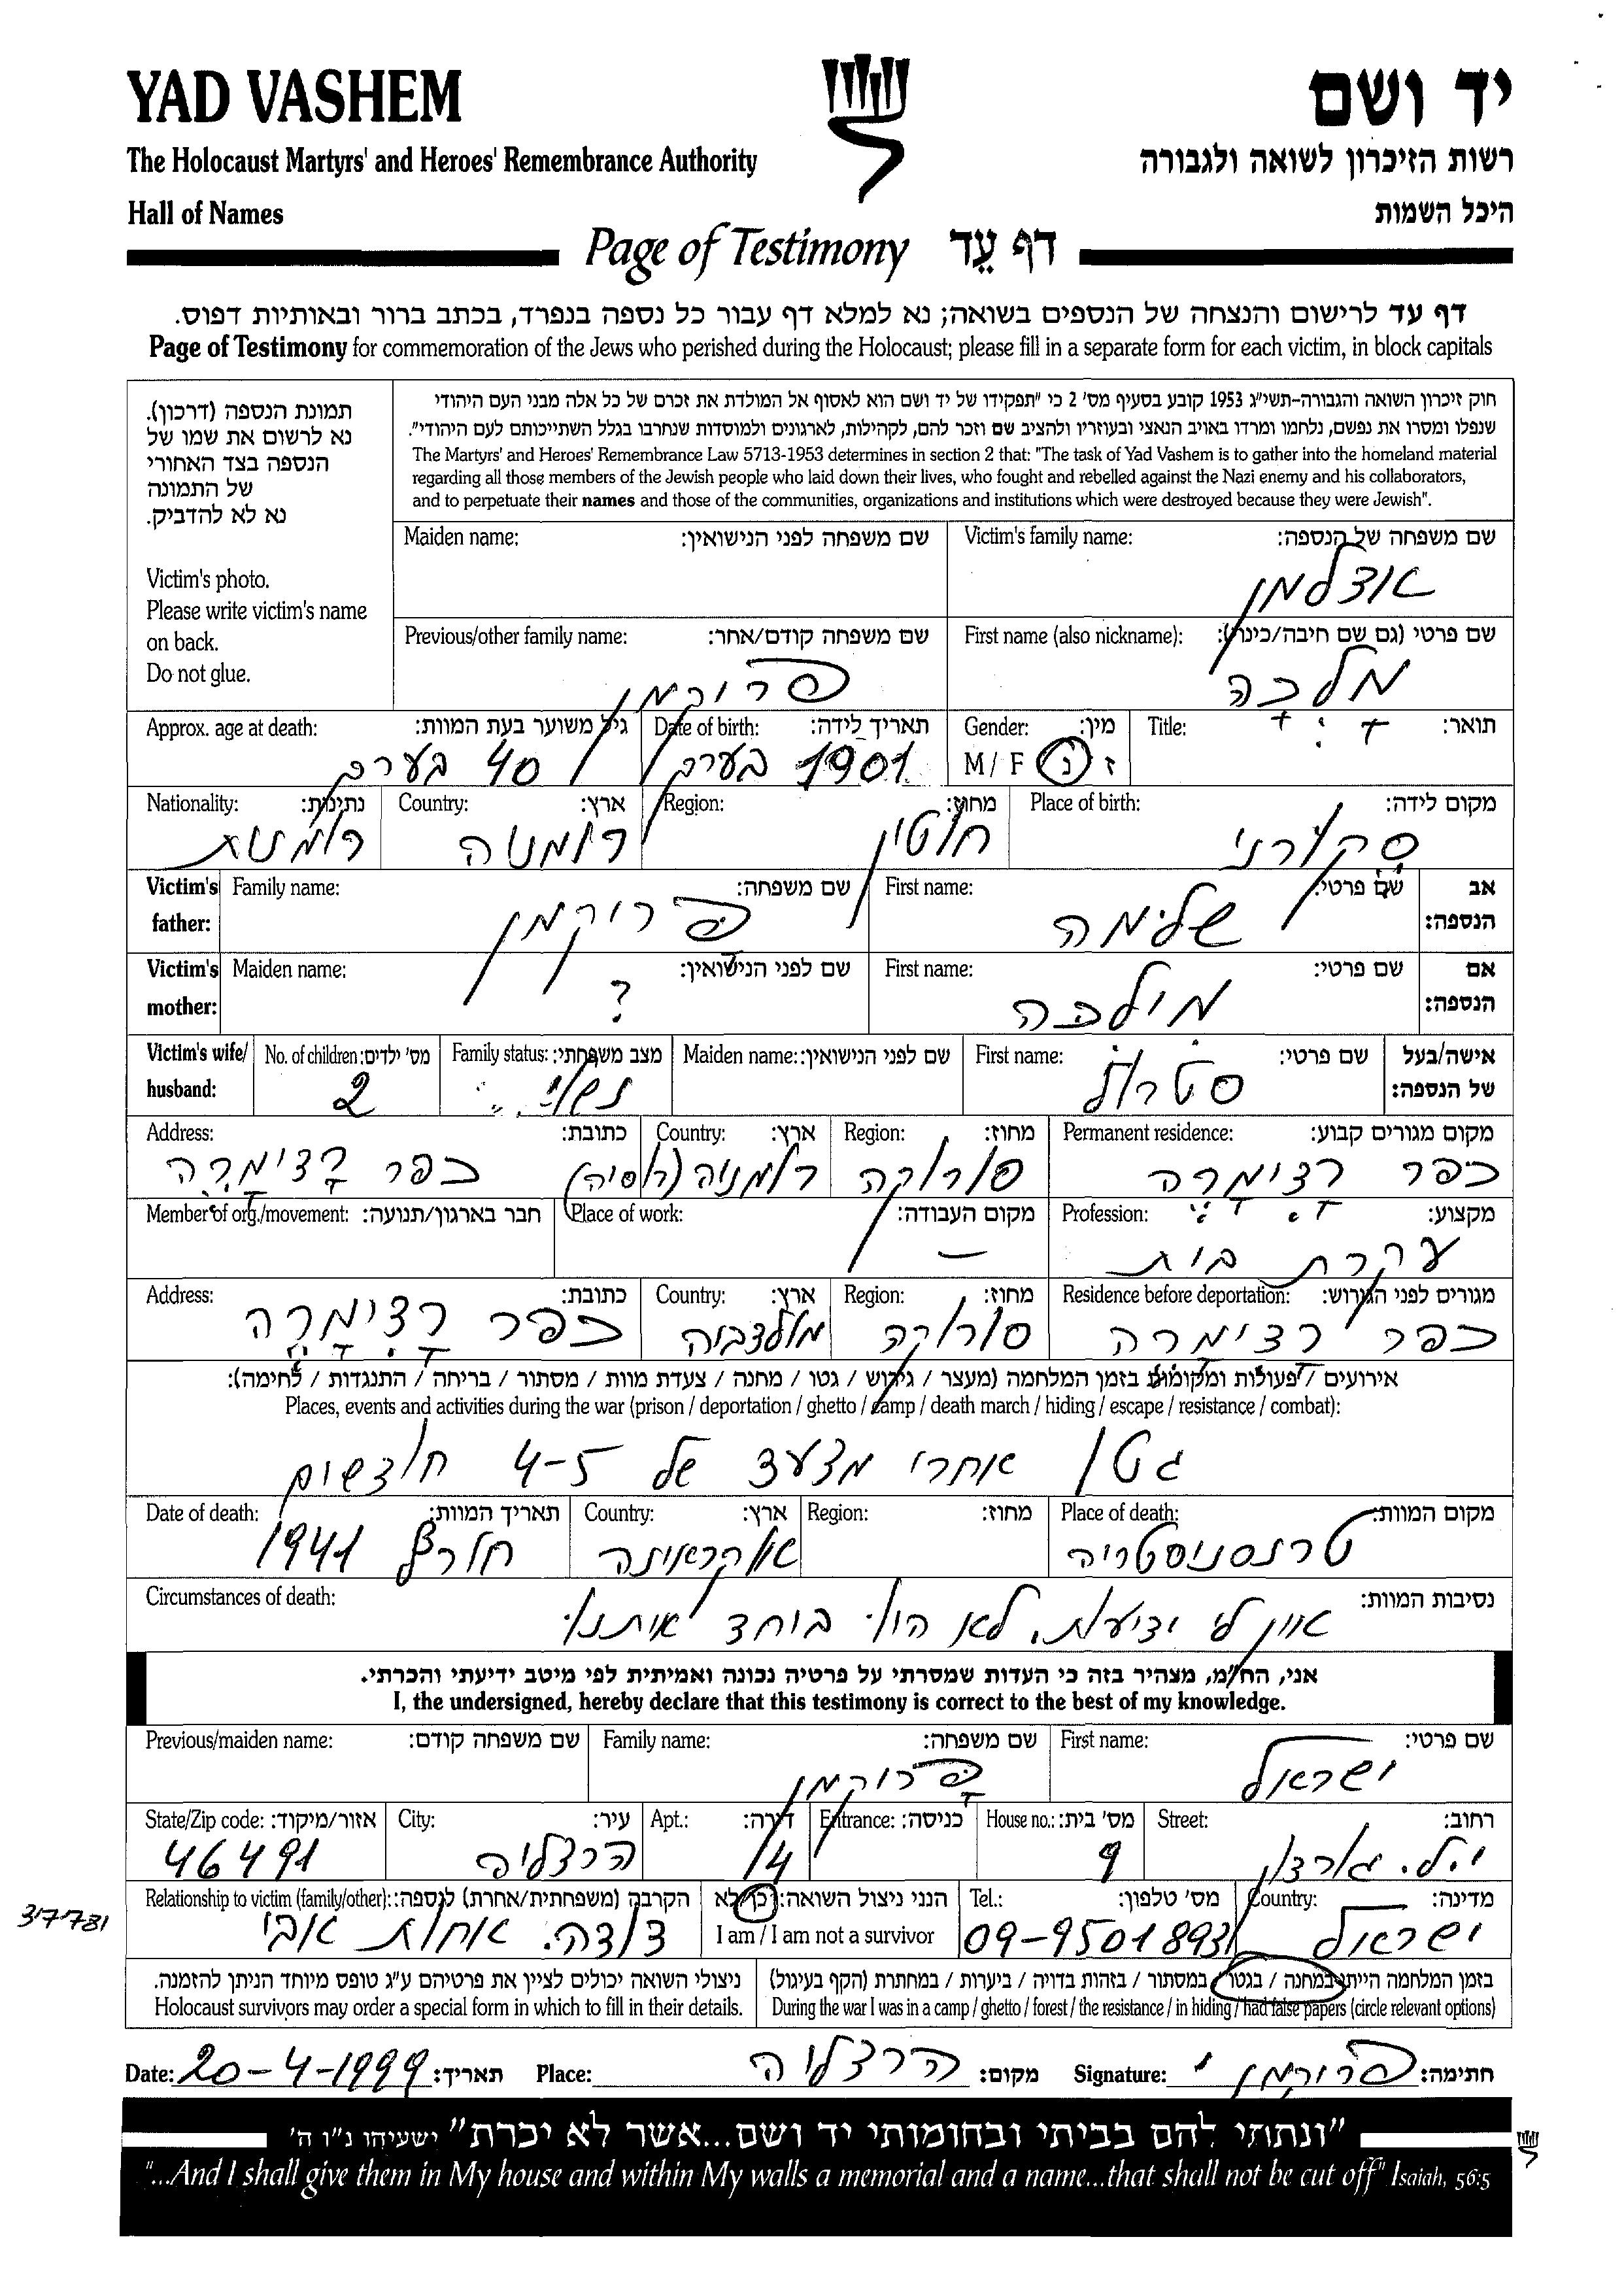 YAD VASHEM
יד ושם
The Holocaust Martyrs' and Heroes' Remembrance Authority
רשות הזיכרון לשואה ולגבורה
Hall of Names
היכל השמות
Page of Testimony דף עֵד
דף עד לרישום והנצחה של הנספים בשואה; נא למלא דף עבור כל נספה בנפרד, בכתב ברור ובאותיות דפוס.
Page of Testimony for commemoration of the Jews who perished during the Holocaust; please fill in a separate form for each victim, in block capitals
תמונת הנספה (דרכון).
נא לרשום את שמו של
הנספה בצד האחורי
של התמונה
נא לא להדביק.
Victim's photo.
Please write victim's name
on back.
Do not glue.
חוק זיכרון השואה והגבורה-תשי"ג 1953 קובע בסעיף מס' 2 כי "תפקידו של יד ושם הוא לאסוף אל המולדת את זכרם של כל אלה מבני העם היהודי
שנפלו ומסרו את נפשם, נלחמו ומרדו באויב הנאצי ובעוזריו ולהציב שם וזכר להם, לקהילות, לארגונים ולמוסדות שנחרבו בגלל השתייכותם לעם היהודי".
The Martyrs' and Heroes' Remembrance Law 5713-1953 determines in section 2 that: "The task of Yad Vashem is to gather into the homeland material
regarding all those members of the Jewish people who laid down their lives, who fought and rebelled against the Nazi enemy and his collaborators,
and to perpetuate their names and those of the communities, organizations and institutions which were destroyed because they were Jewish".
Victim's family name: שם משפחה של הנספה:
אדלמן
Maiden name: שם משפחה לפני הנישואין:
First name (also nickname): שם פרטי (גם שם חיבה/כינוי):
מלכה
Previous/other family name: שם משפחה קודם/אחר:
פרוקמן
Title: תואר:
Gender: מין:
M / F ז נ
Date of birth: תאריך לידה:
1901 בערך
Approx. age at death: גיל משוער בעת המוות:
40 בערך
Place of birth: מקום לידה:
סקורני
Region: מחוז:
חוטין
Country: ארץ:
רומניה
Nationality: נתינות:
רומנית
Victim's father: אב הנספה:
First name: שם פרטי:
שלימה
Family name: שם משפחה:
פרוקמן
Victim's mother: אם הנספה:
First name: שם פרטי:
מילכה
Maiden name: שם לפני הנישואין:
?
Victim's wife/ husband: אישה/בעל של הנספה:
First name: שם פרטי:
סטרול
Maiden name: שם לפני הנישואין:
Family status: מצב משפחתי:
No. of children: מס' ילדים:
2
Permanent residence: מקום מגורים קבוע:
כפר רצימרה
Region: מחוז:
סורוקה
Country: ארץ:
רומניה (רוסיה)
Address: כתובת:
כפר רצימרה
Profession: מקצוע:
עקרת בית
Place of work: מקום העבודה:
—
Member of org./movement: חבר בארגון/תנועה:
Residence before deportation: מגורים לפני הגירוש:
כפר רצימרה
Region: מחוז:
סורוקה
Country: ארץ:
מולדביה
Address: כתובת:
כפר רצימרה
אירועים / פעולות ומקומות בזמן המלחמה (מעצר / גירוש / גטו / מחנה / צעדת מוות / מסתור / בריחה / התנגדות / לחימה):
Places, events and activities during the war (prison / deportation / ghetto / camp / death march / hiding / escape / resistance / combat):
גטו אחרי מצעד של 4-5 חודשים
Place of death: מקום המוות:
טרנסניסטריה
Region: מחוז:
Country: ארץ:
אוקראינה
Date of death: תאריך המוות:
חורף 1941
Circumstances of death: נסיבות המוות:
אין לי ידיעות. לא היו ביחד איתנו.
אני, הח"מ, מצהיר בזה כי העדות שמסרתי על פרטיה נכונה ואמיתית לפי מיטב ידיעתי והכרתי.
I, the undersigned, hereby declare that this testimony is correct to the best of my knowledge.
First name: שם פרטי:
ישראל
Family name: שם משפחה:
פרוקמן
Previous/maiden name: שם משפחה קודם:
Street: רחוב:
י.ל. גורדון
House no.: מס' בית:
9
Entrance: כניסה:
Apt.: דירה:
14
City: עיר:
הרצליה
State/Zip code: אזור/מיקוד:
46491
Country: מדינה:
ישראל
Tel.: מס' טלפון:
09-9501893
הנני ניצול השואה: כן/לא
I am / I am not a survivor
Relationship to victim (family/other): הקרבה (משפחתית/אחרת) לנספה:
דודה. אחות אבי
317781
בזמן המלחמה הייתי במחנה / בגטו / במסתור / בזהות בדויה / ביערות / במחתרת (הקף בעיגול)
During the war I was in a camp / ghetto / forest / the resistance / in hiding / had false papers (circle relevant options)
ניצולי השואה יכולים לציין את פרטיהם ע"ג טופס מיוחד הניתן להזמנה.
Holocaust survivors may order a special form in which to fill in their details.
Date: 20-4-1999 תאריך: Place: הרצליה מקום: Signature: פרוקמן י חתימה:
"ונתתי להם בביתי ובחומותי יד ושם...אשר לא יכרת" ישעיהו נ"ו ה'
"...And I shall give them in My house and within My walls a memorial and a name...that shall not be cut off" Isaiah, 56:5